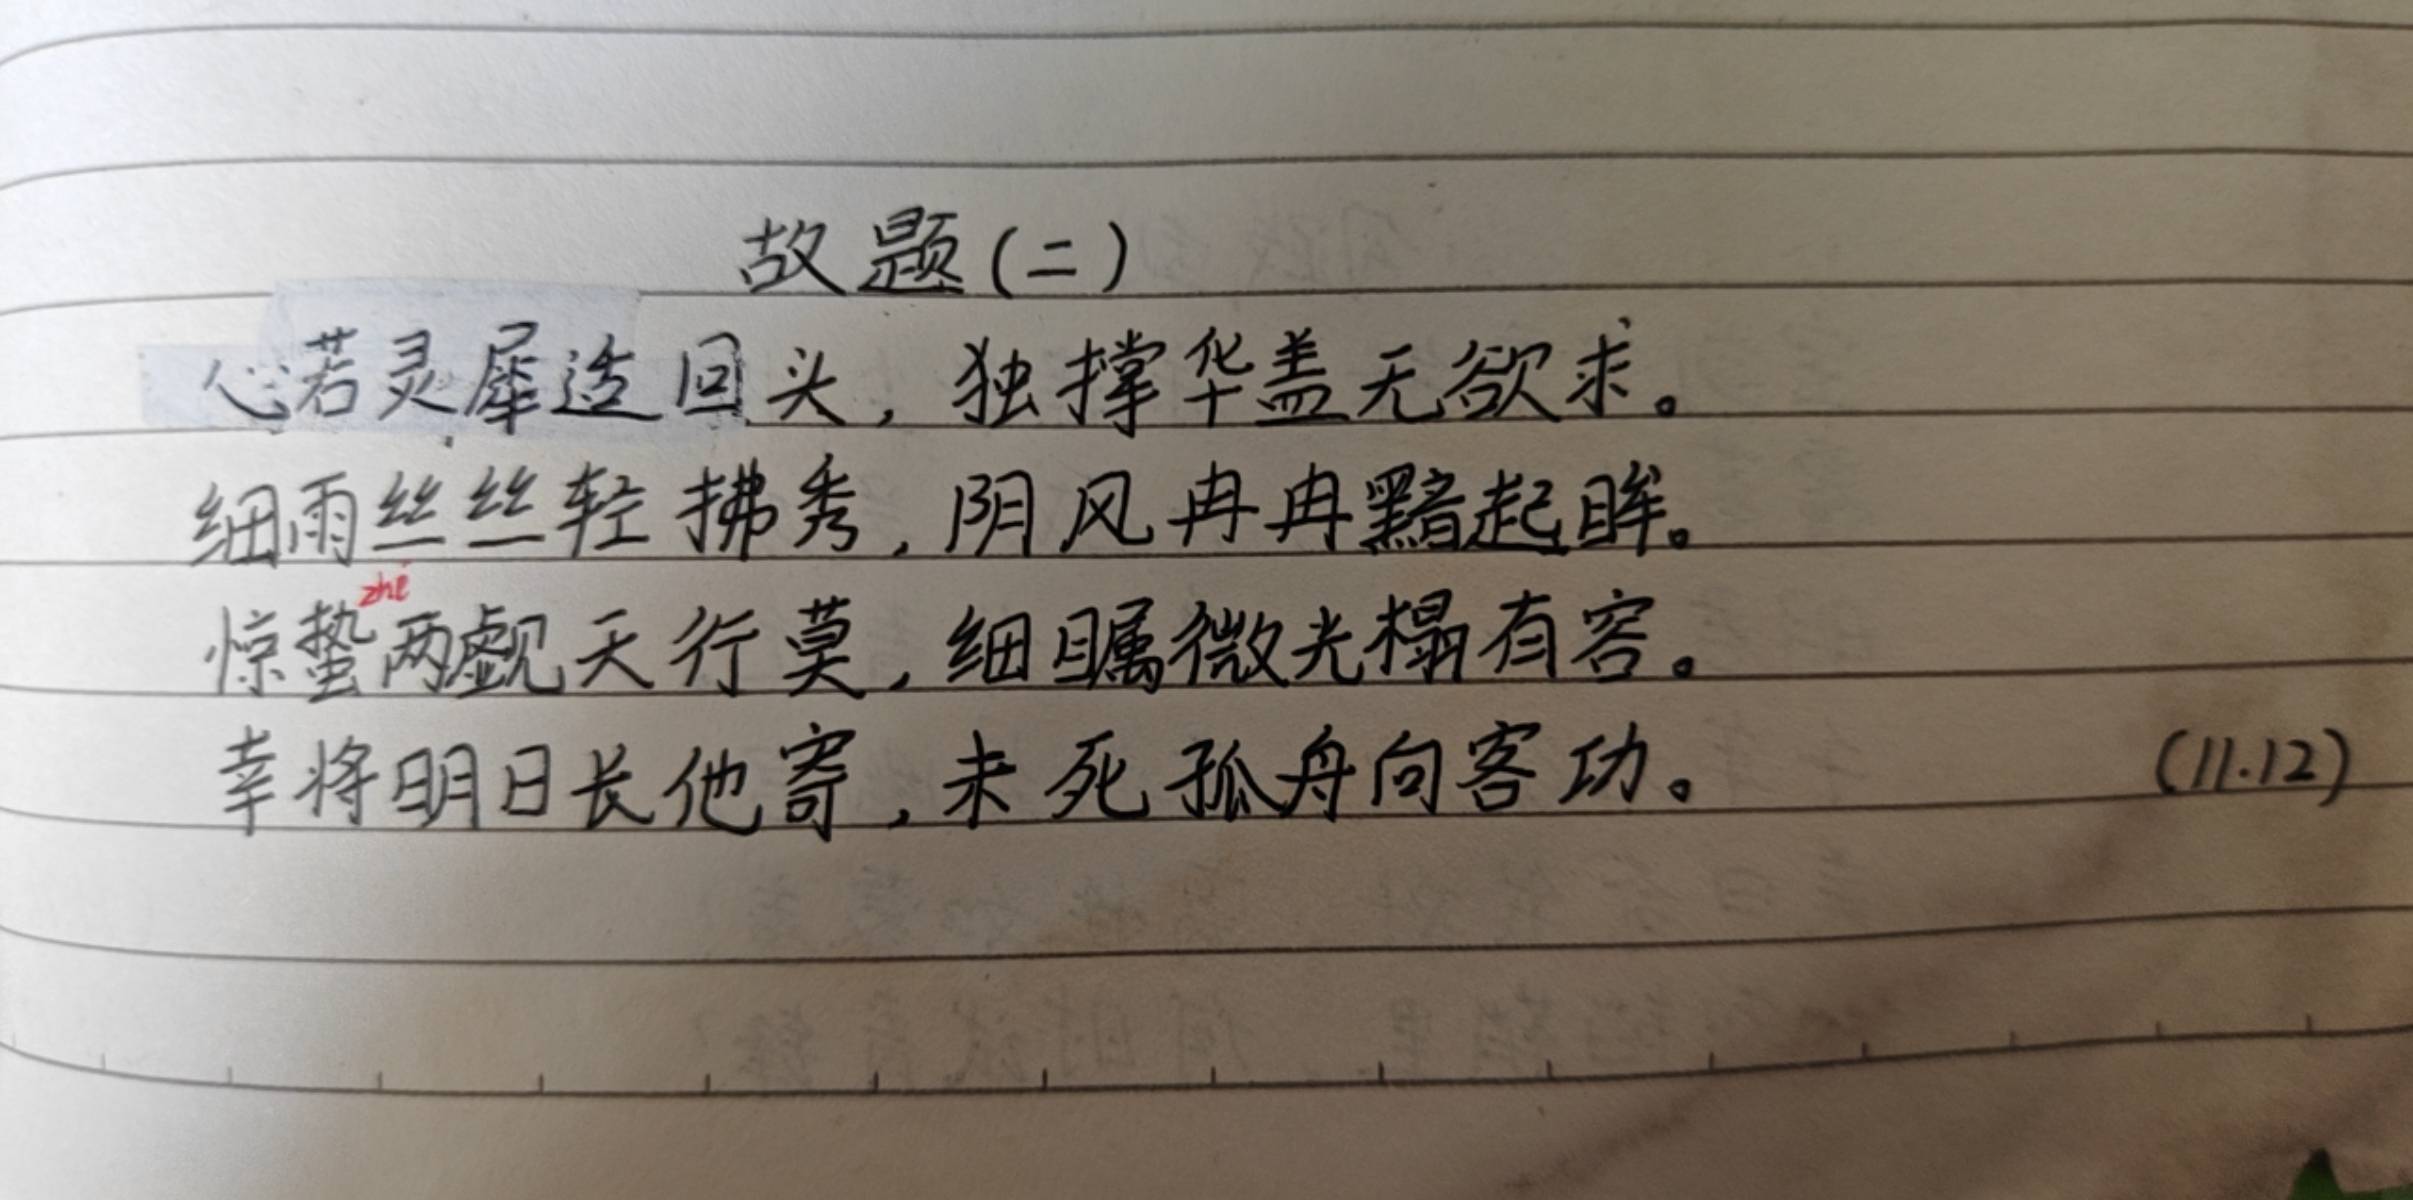 故题(二)
心若灵犀造回头，独撑华盖无欲求。
细雨丝丝轻拂秀，阴风冉冉黯起眸。
zhé
惊蛰两觑天行莫，细瞩微光榻有容。
幸将明日长他寄，未死孤舟向客功。 (11.12)